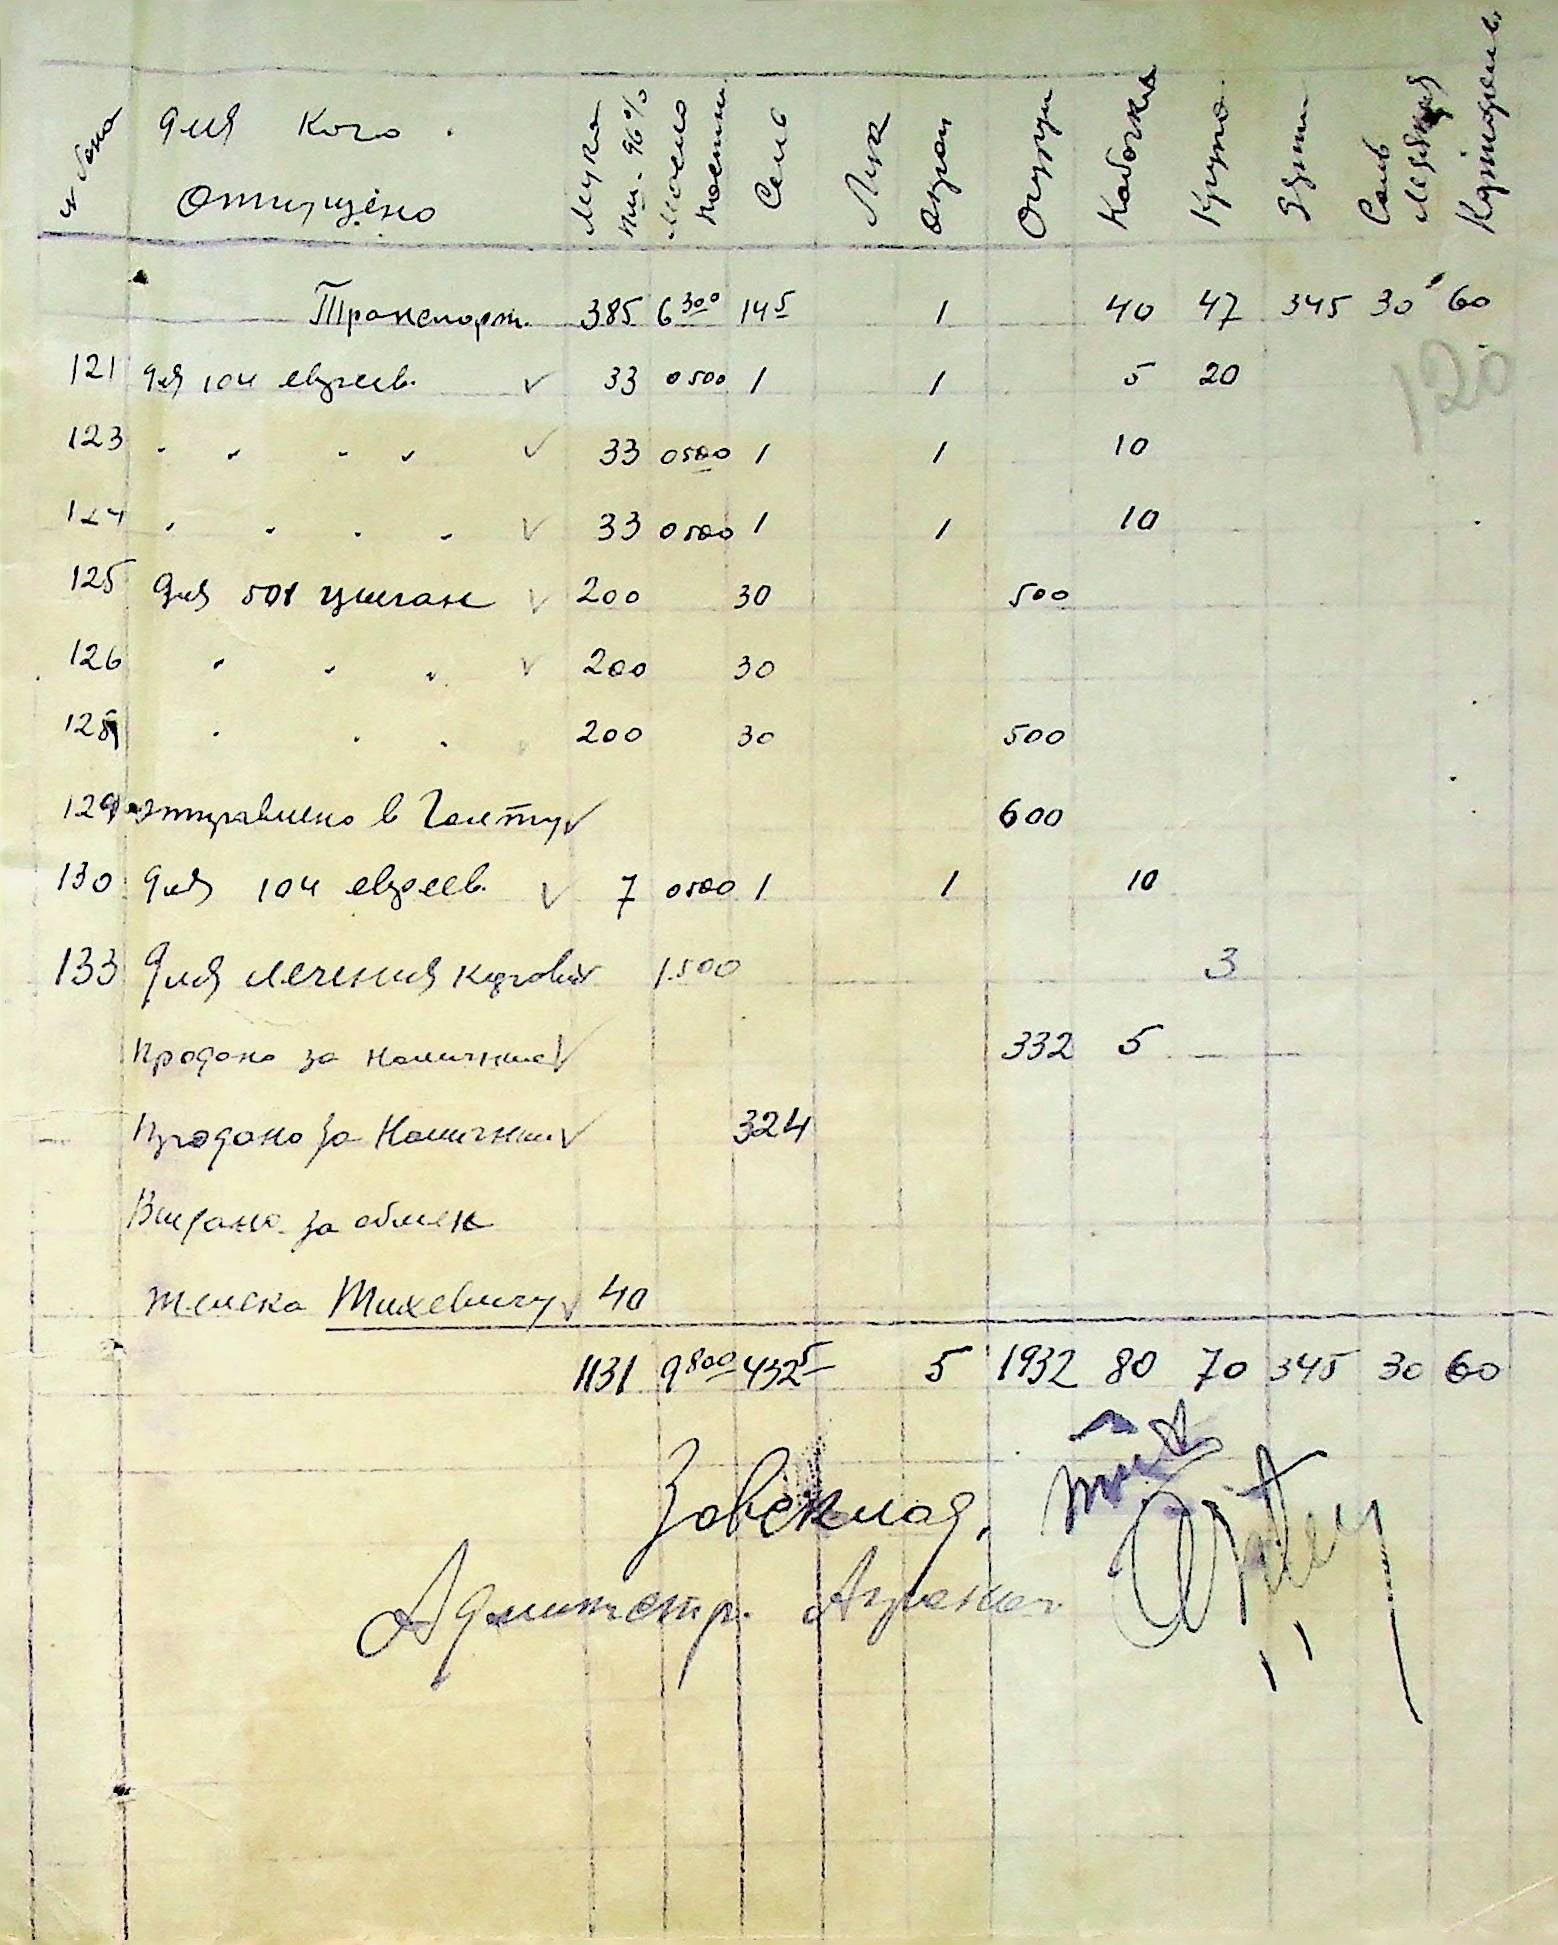 для кого
Отпущено
Мука пш. 96% Масло постн. Соль Лук Огурцы Кабачки Крупа Соль
Транспорт. 385 6300 145 1 40 47 345 30 60
120
121 для 104 евреев. ✓ 33 0500 1 1 5 20
123 " " " " ✓ 33 0500 1 1 10
124 " " " " ✓ 33 0500 1 1 10
125 Для 501 циган ✓ 200 30 500
126 " " " ✓ 200 30
128 " " " 200 30 500
129 отправлено в Голту ✓ 600
130 Для 104 евреев. ✓ 7 0500 1 1 10
133 Для лечения 1.500 3
Продано за наличние ✓ 332 5 — —
Продано за Наличние ✓ 324
Видано за обмен
Михевичу ✓ 40
1131 9800 4325 5 1932 80 70 345 30 60
Завсклад.
Администр.